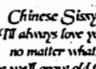 Chinese Sissy
I'll always love yo
no matter what